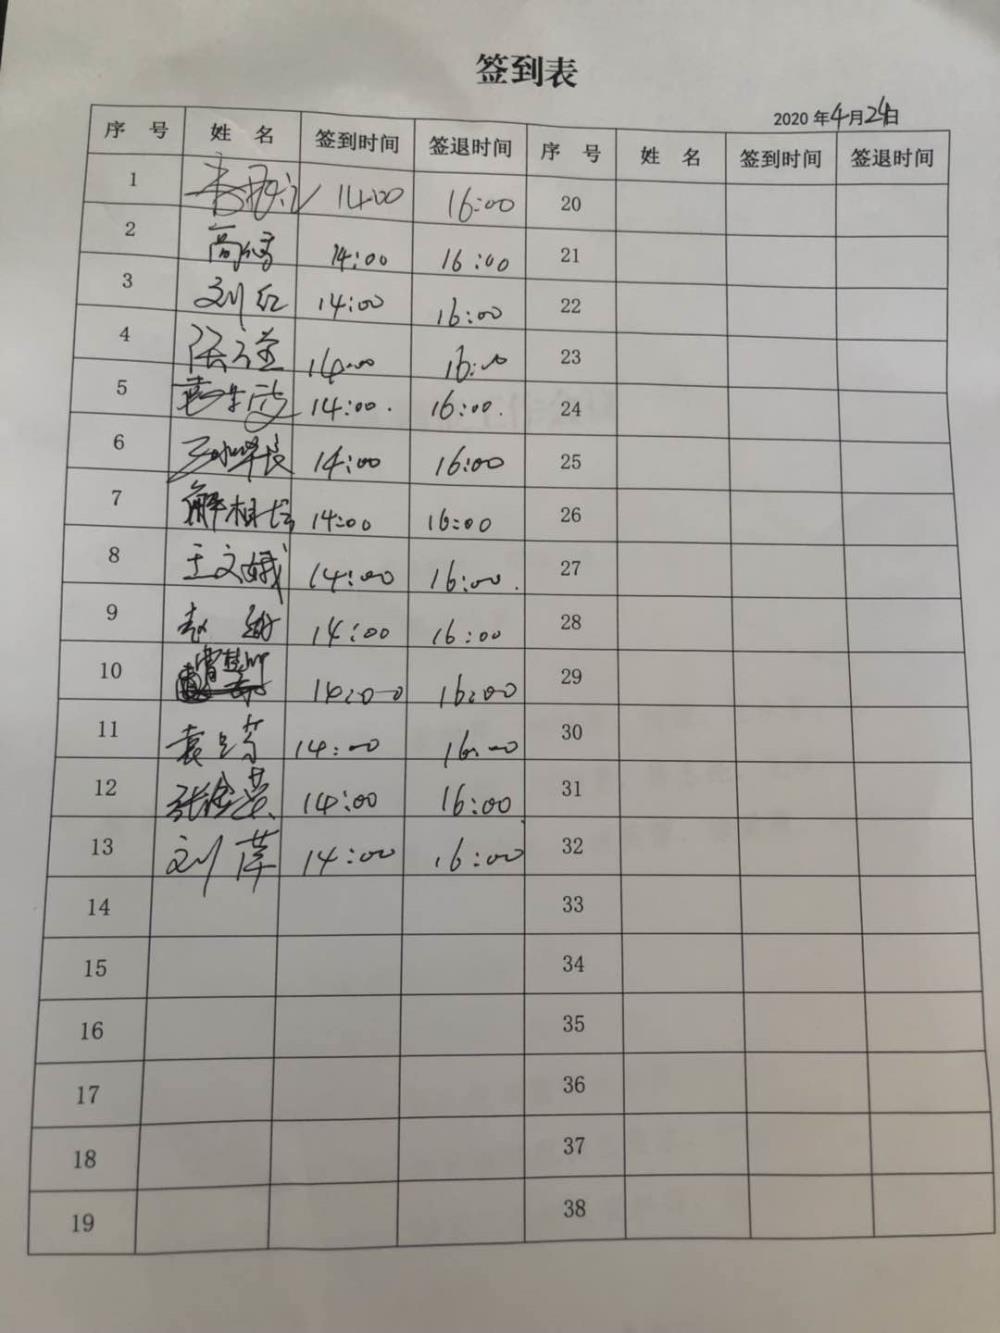 签到表
2020年4月24日
序 号 姓 名 签到时间 签退时间 序 号 姓 名 签到时间 签退时间
1 14:00 16:00 20
2 14:00 16:00 21
3 刘红 14:00 16:00 22
4 14:00 16:00 23
5 14:00. 16:00. 24
6 14:00 16:00 25
7 解相 14:00 16:00 26
8 王文娥 14:00 16:00. 27
9 赵 14:00 16:00 28
10 14:00 16:00 29
11 袁 14:00 16:00 30
12 张金 14:00 16:00 31
13 刘萍 14:00 16:00 32
14 33
15 34
16 35
17 36
18 37
19 38